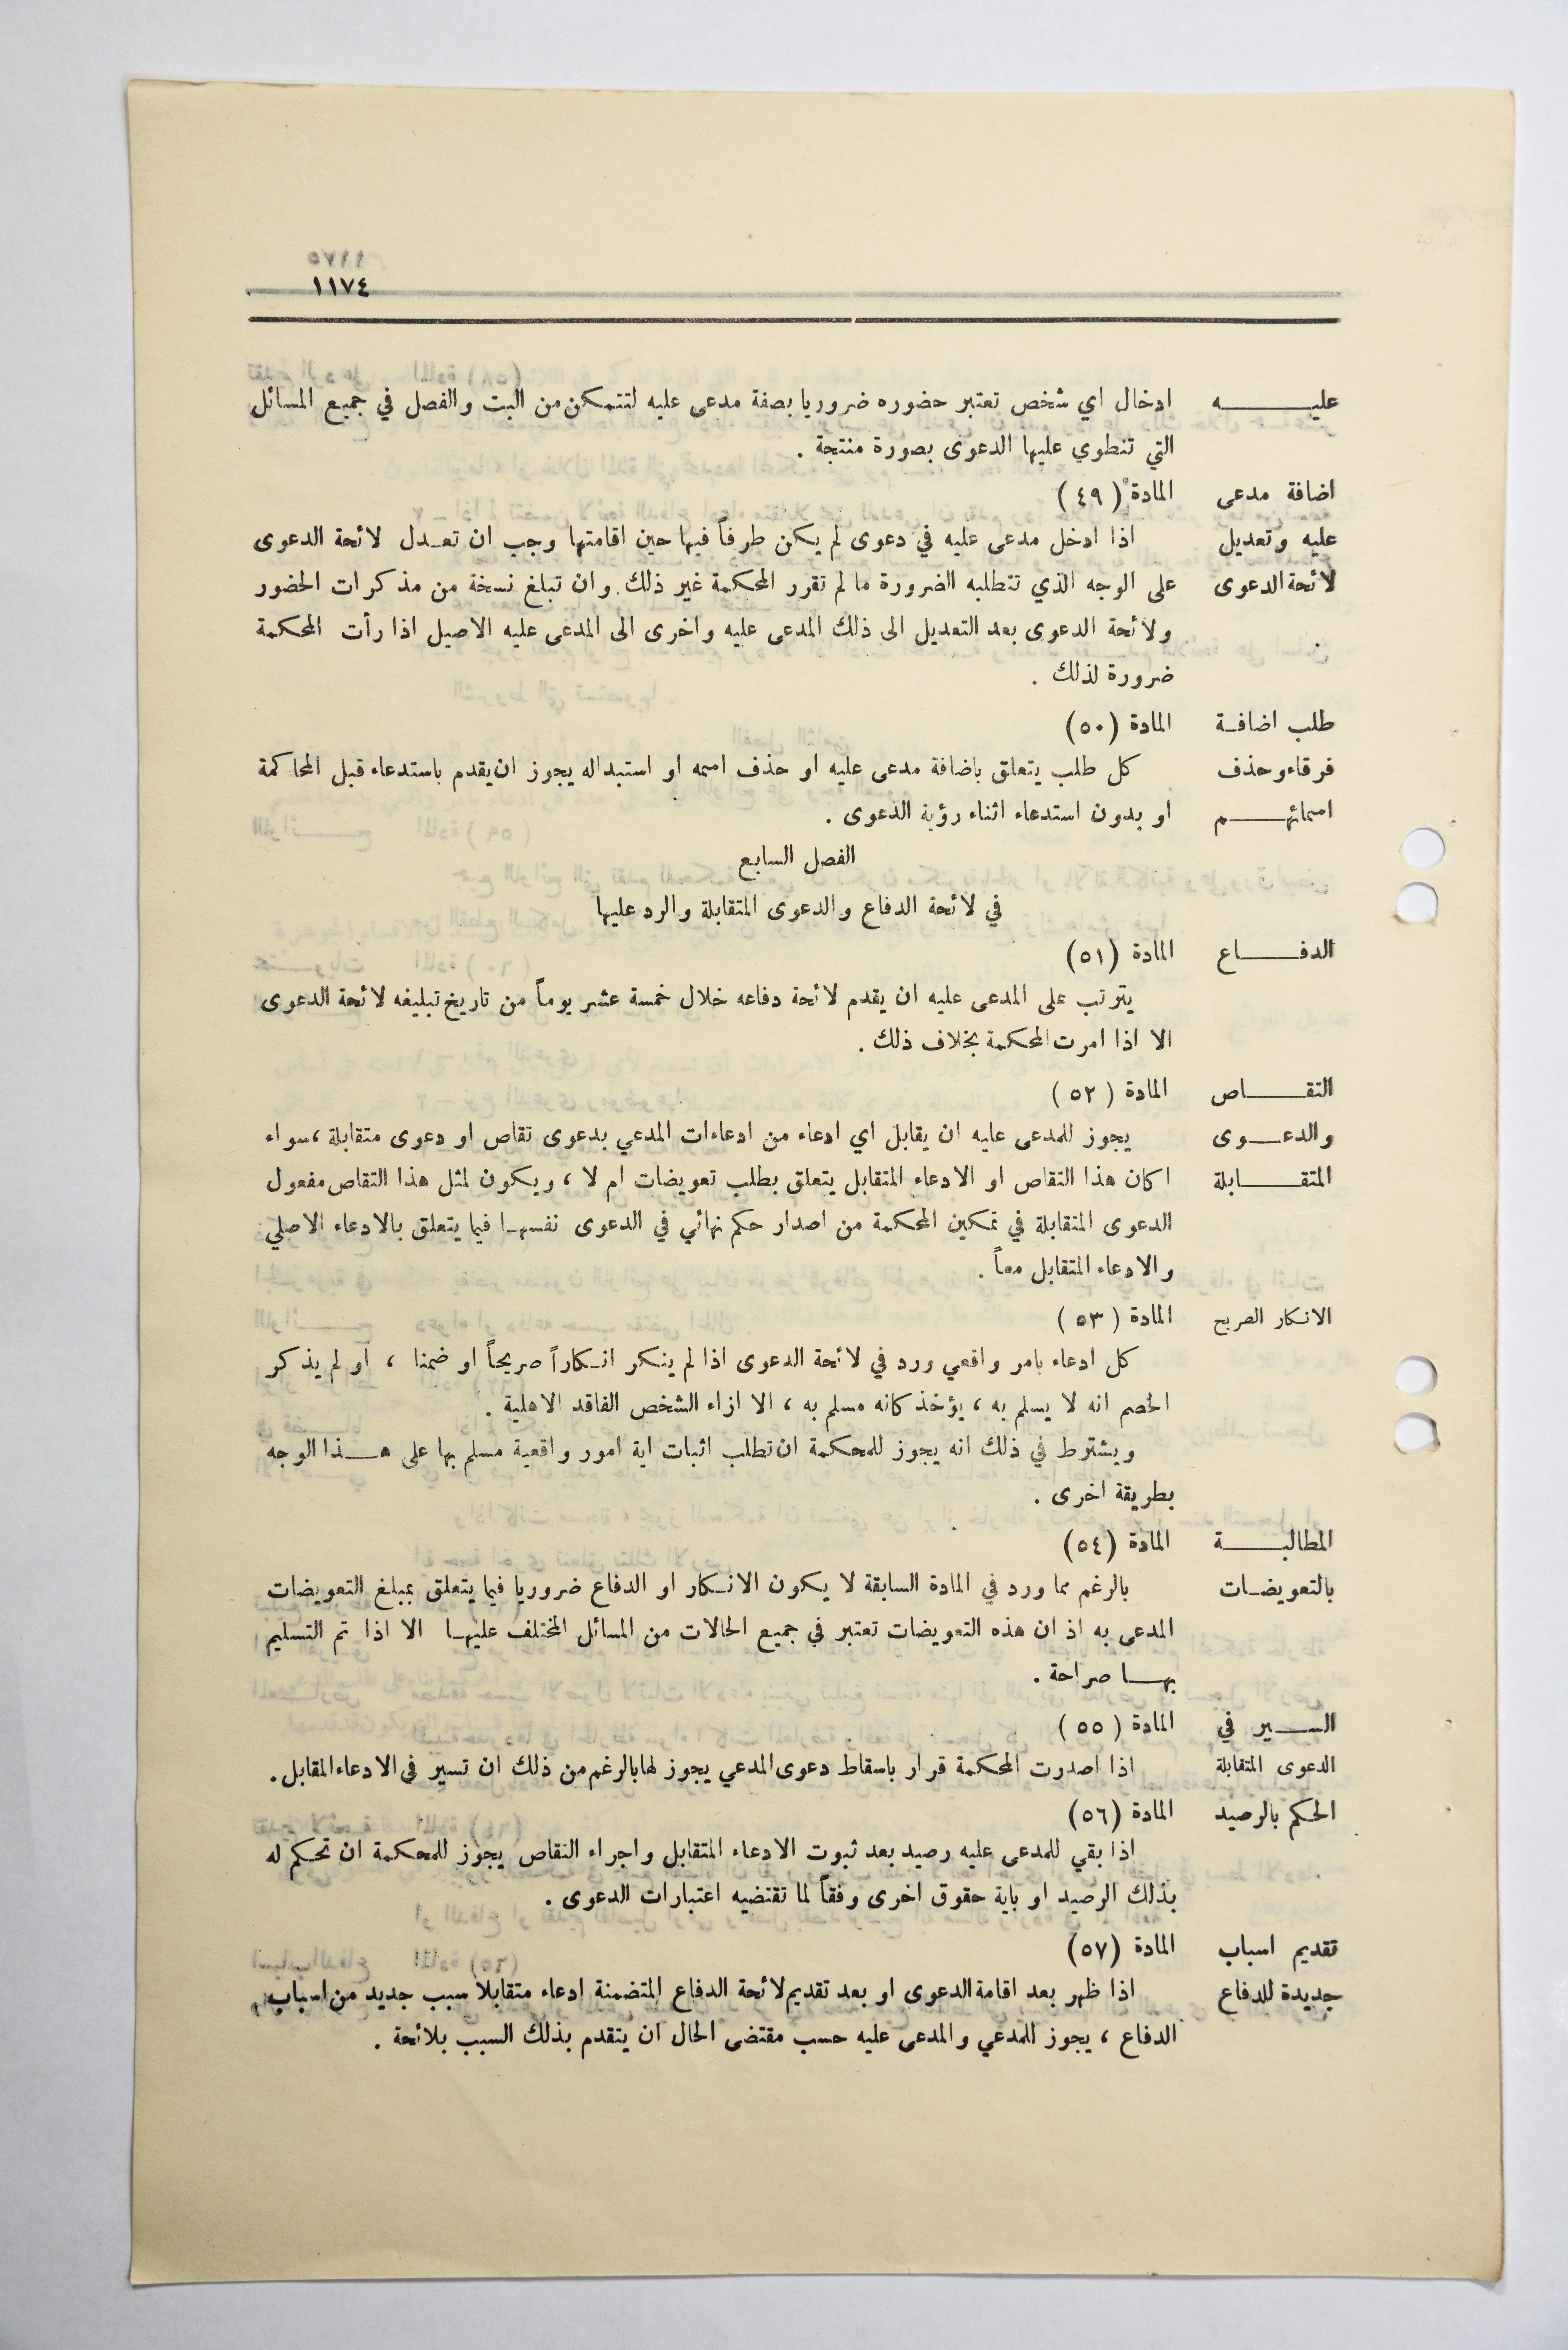 ١١٧٤
عليـــــه ادخال اي شخص تعتبر حضوره ضروريا بصفة مدعى عليه لتتمكن من البت والفصل في جميع المسائل
التي تنطوي عليها الدعوى بصورة منتجة .
اضافة مدعى المادة (٤٩)
عليه وتعديل اذا ادخل مدعى عليه في دعوى لم يكن طرفاً فيها حين اقامتها وجب ان تعـدل لائحة الدعوى
لائحة الدعوى على الوجه الذي تتطلبه الضرورة ما لم تقرر المحكمة غير ذلك وان تبلغ نسخة من مذكرات الحضور
ولائحة الدعوى بعد التعديل الى ذلك المدعى عليه واخرى الى المدعى عليه الاصيل اذا رأت المحكمة
ضرورة لذلك .
طلب اضافـة المادة (٥٠)
فرقاء وحذف كل طلب يتعلق باضافة مدعى عليه او حذف اسمه او استبداله يجوز ان يقدم باستدعاء قبل المحاكمة
اسمائهـــــم او بدون استدعاء اثناء رؤية الدعوى .
الفصل السابع
في لائحة الدفاع والدعوى المتقابلة والرد عليها
الدفـــــاع المادة (٥١)
يترتب على المدعى عليه ان يقدم لائحة دفاعه خلال خمسة عشر يوماً من تاريخ تبليغه لائحة الدعوى
الا اذا امرت المحكمة بخلاف ذلك .
التقـــــاص المادة (٥٢)
والدعـــوى يجوز للمدعى عليه ان يقابل اي ادعاء من ادعاءات المدعي بدعوى تقاص او دعوى متقابلة ، سواء
المتقـــــابلة اكان هذا التقاص او الادعاء المتقابل يتعلق بطلب تعويضات ام لا ، ويكون لمثل هذا التقاص مفعول
الدعوى المتقابلة في تمكين المحكمة من اصدار حكم نهائي في الدعوى نفسهـا فيما يتعلق بالادعاء الاصلي
والادعاء المتقابل معاً .
الانكار الصريح المادة (٥٣)
كل ادعاء بامر واقعي ورد في لائحة الدعوى اذا لم ينكر انـكاراً صريحاً او ضمنا ، او لم يذكر
الخصم انه لا يسلم به ، يؤخذ كانه مسلم به ، الا ازاء الشخص الفاقد الاهلية .
ويشترط في ذلك انه يجوز للمحكمة ان تطلب اثبات اية امور واقعية مسلم بها على هـــذا الوجه
بطريقة اخرى .
المطالبـــــة المادة (٥٤)
بالتعويضـات بالرغم مما ورد في المادة السابقة لا يكون الانـكار او الدفاع ضروريا فيما يتعلق بمبلغ التعويضات
المدعى به اذ ان هذه التعويضات تعتبر في جميع الحالات من المسائل المختلف عليهـا الا اذا تم التسليم
بهـــا صراحة .
الســـير في المادة (٥٥)
الدعوى المتقابلة اذا اصدرت المحكمة قرار باسقاط دعوى المدعي يجوز لها بالرغم من ذلك ان تسير في الادعاء المقابل .
الحكم بالرصيد المادة (٥٦)
اذا بقي للمدعى عليه رصيد بعد ثبوت الادعاء المتقابل واجراء التقاص يجوز للمحكمة ان تحكم له
بذلك الرصيد او باية حقوق اخرى وفقاً لما تقتضيه اعتبارات الدعوى .
تقديم اسباب المادة (٥٧)
جديدة للدفاع اذا ظهر بعد اقامة الدعوى او بعد تقديم لائحة الدفاع المتضمنة ادعاء متقابلا سبب جديد من اسباب
الدفاع ، يجوز للمدعي والمدعى عليه حسب مقتضى الحال ان يتقدم بذلك السبب بلائحة .